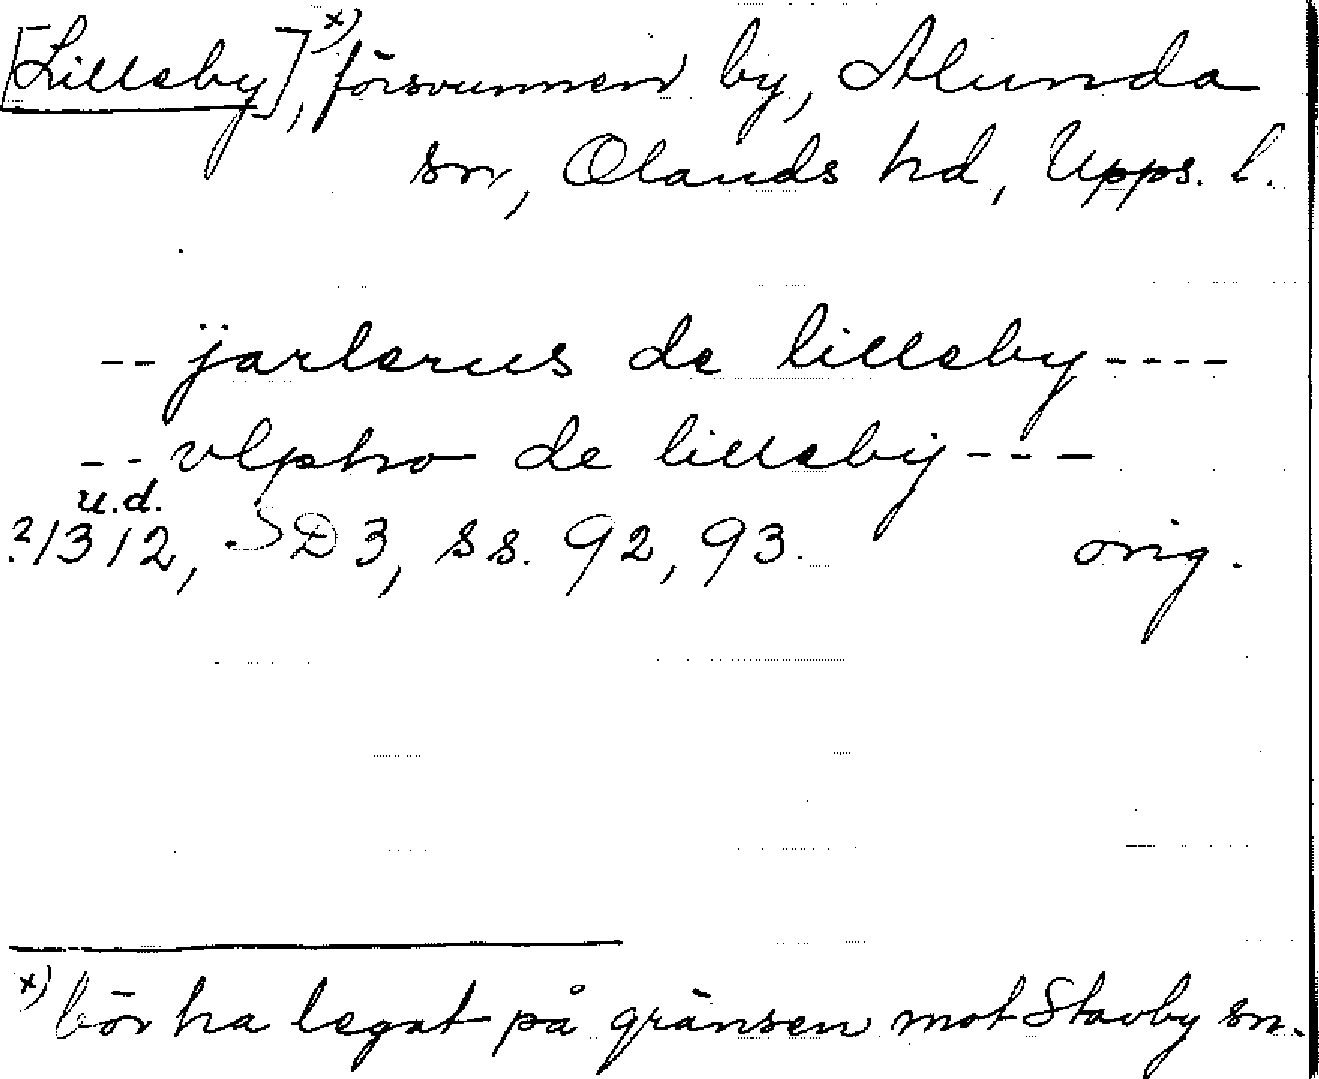 [Lillaby]x), försvunnen by, Alunda
sn, Olands hd, Upps. l.
-- jarlerus de lillaby ----
-- vlpho de lillæby ---
u.d.
?1312, SD 3, ss. 92, 93. orig.
x) bör ha legat på gränsen mot Stavby sn.